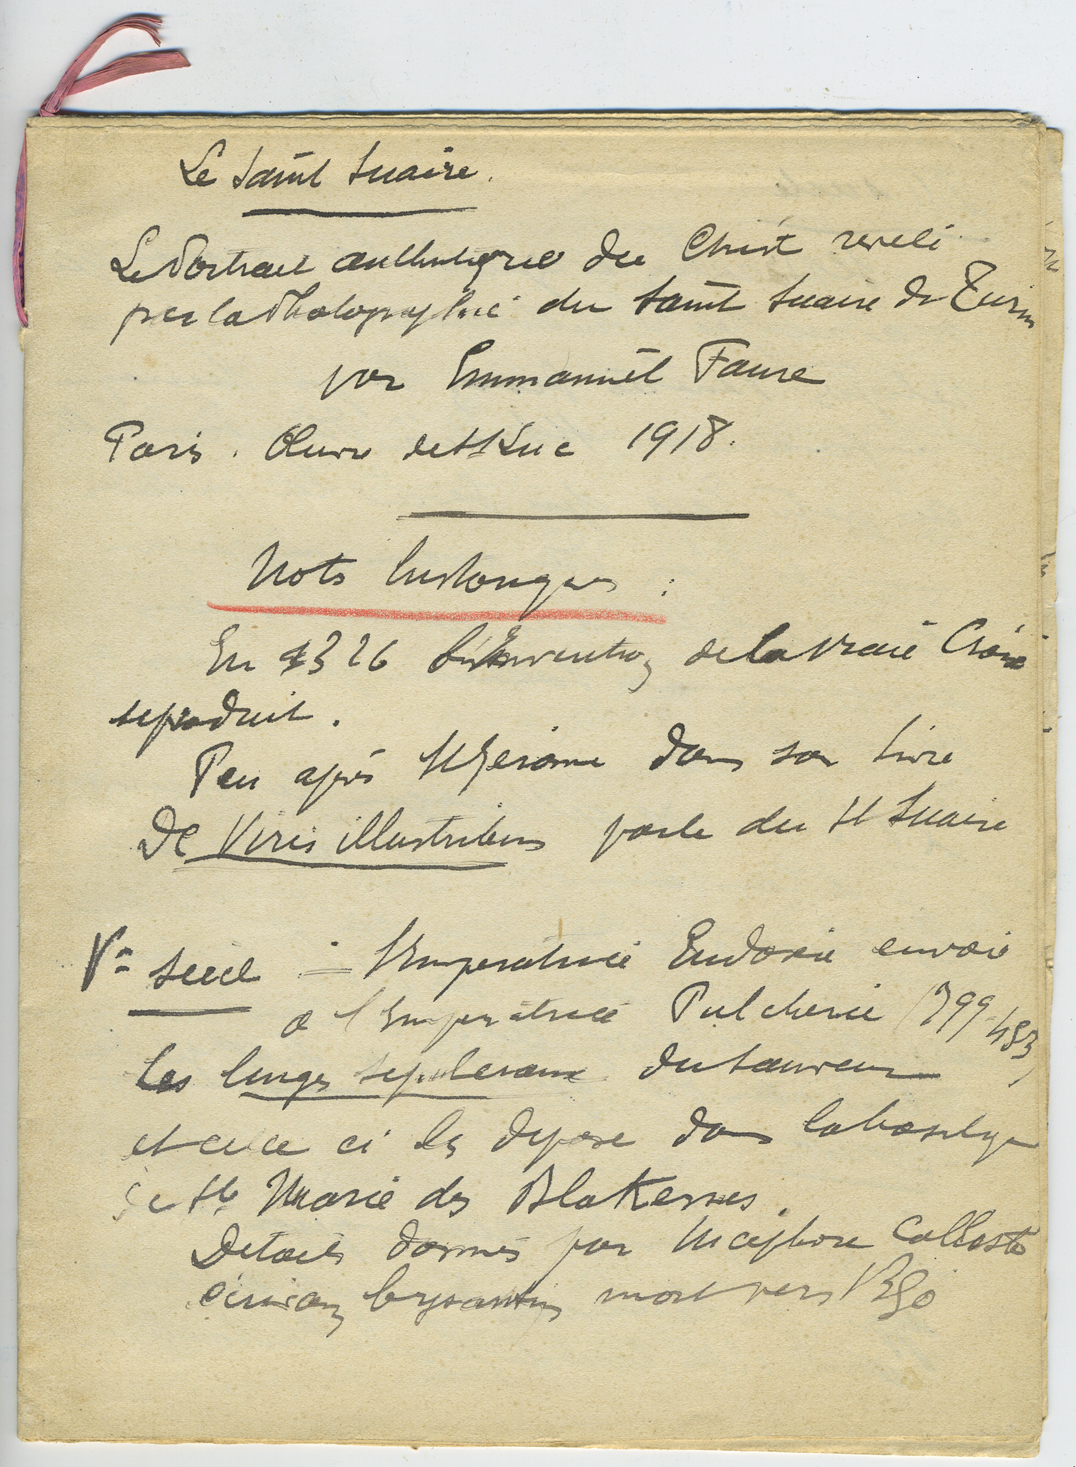 Le Saint Suaire.
Le Portrait authentique du Christ révélé
par la Photographie du Saint Suaire de Turin
par Emmanuël Faure
Paris. Œuvre de St Luc 1918.
Nots historiques :
En 326 l'Invention de la vraie Croix
se produit.
Peu après St Jérome dans son livre
De Viris illustribus parle du St Suaire
Ve siècle : – l'Impératrice Eudoxie envoie
à l'Impératrice Pulchérie (399-453)
les linges sépulcraux du Sauveur
et celle ci les dépose dans la basilique
de Ste Marie des Blakernes.
Détails donnés par Nicéphore Calliste
écrivain byzantin mort vers 1350